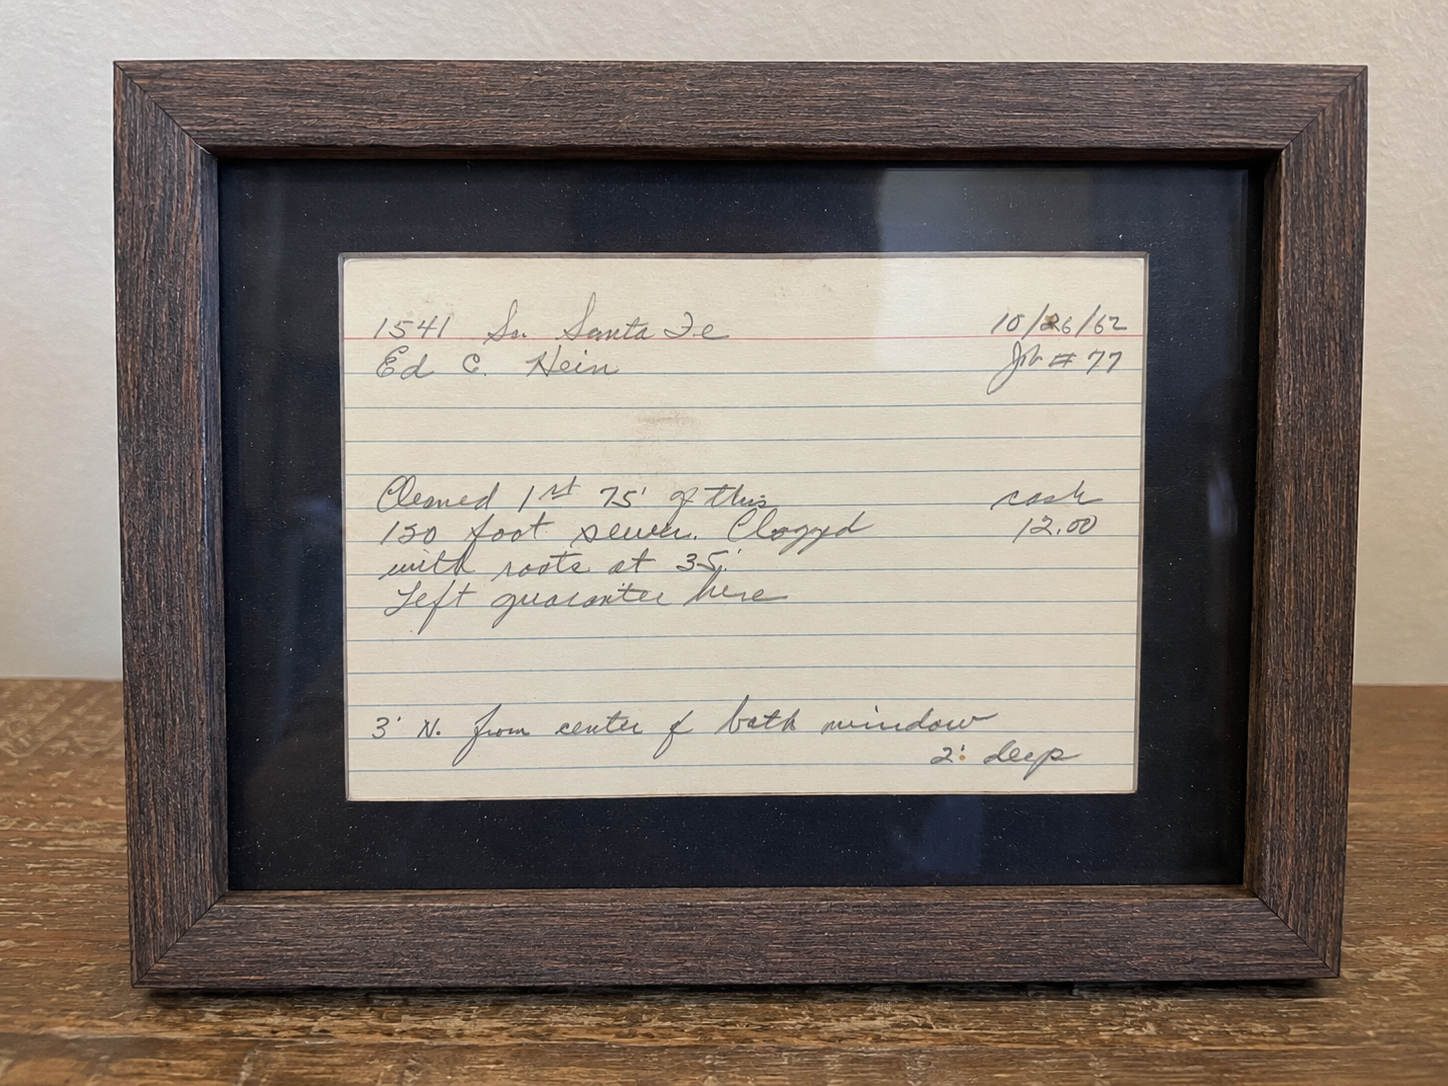 1541 So. Santa Fe 10/26/62
Ed C. Hein Job # 77
Cleaned 1st 75' of this cash
130 foot sewer. Cloggd 12.00
with roots at 35'
Left guarantee here
3' N. from center of bath window
2' deep